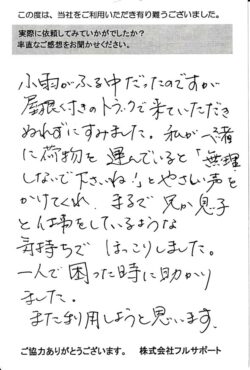 この度は、当社をご利用いただき有り難うございました。
実際に依頼してみていかがでしたか?
率直なご感想をお聞かせください。
小雨がふる中だったのですが
屋根つきのトラックで来ていただき
ぬれずにすみました。私が一緒
に荷物を運んでいると「無理
しないで下さいね!」とやさしい声を
かけてくれ、まるで兄か息子
と仕事をしているような
気持ちでほっこりしました。
一人で困った時に助かり
ました。
また利用しようと思います。
ご協力ありがとうございます。 株式会社フルサポート